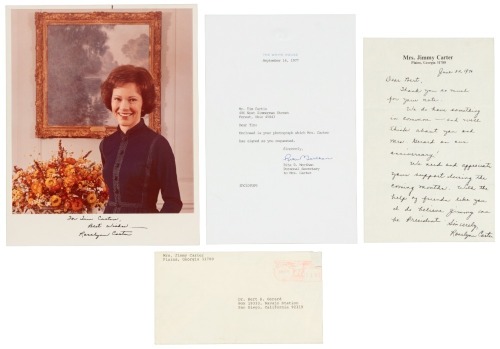 To Jim Carter
Best wishes
Rosalynn Carter
THE WHITE HOUSE
September 14, 1977
Dear Tim:
Enclosed is your photograph which Mrs. Carter
has signed as you requested.
Sincerely,
Personal Secretary
to Mrs. Carter
Mrs. Jimmy Carter
Plains, Georgia 31780
Dear Bert,
Thank you so much
for your note.
We do have something
in common — and we'll
think about you and
Mrs. Gerard on our
anniversary!
We need and appreciate
your support during the
coming months. With the
help of friends like you
I do believe Jimmy can
be President.
Sincerely
Rosalynn Carter
Mrs. Jimmy Carter
Plains, Georgia 31780
Mr. Bert H. Gerard
San Diego, California